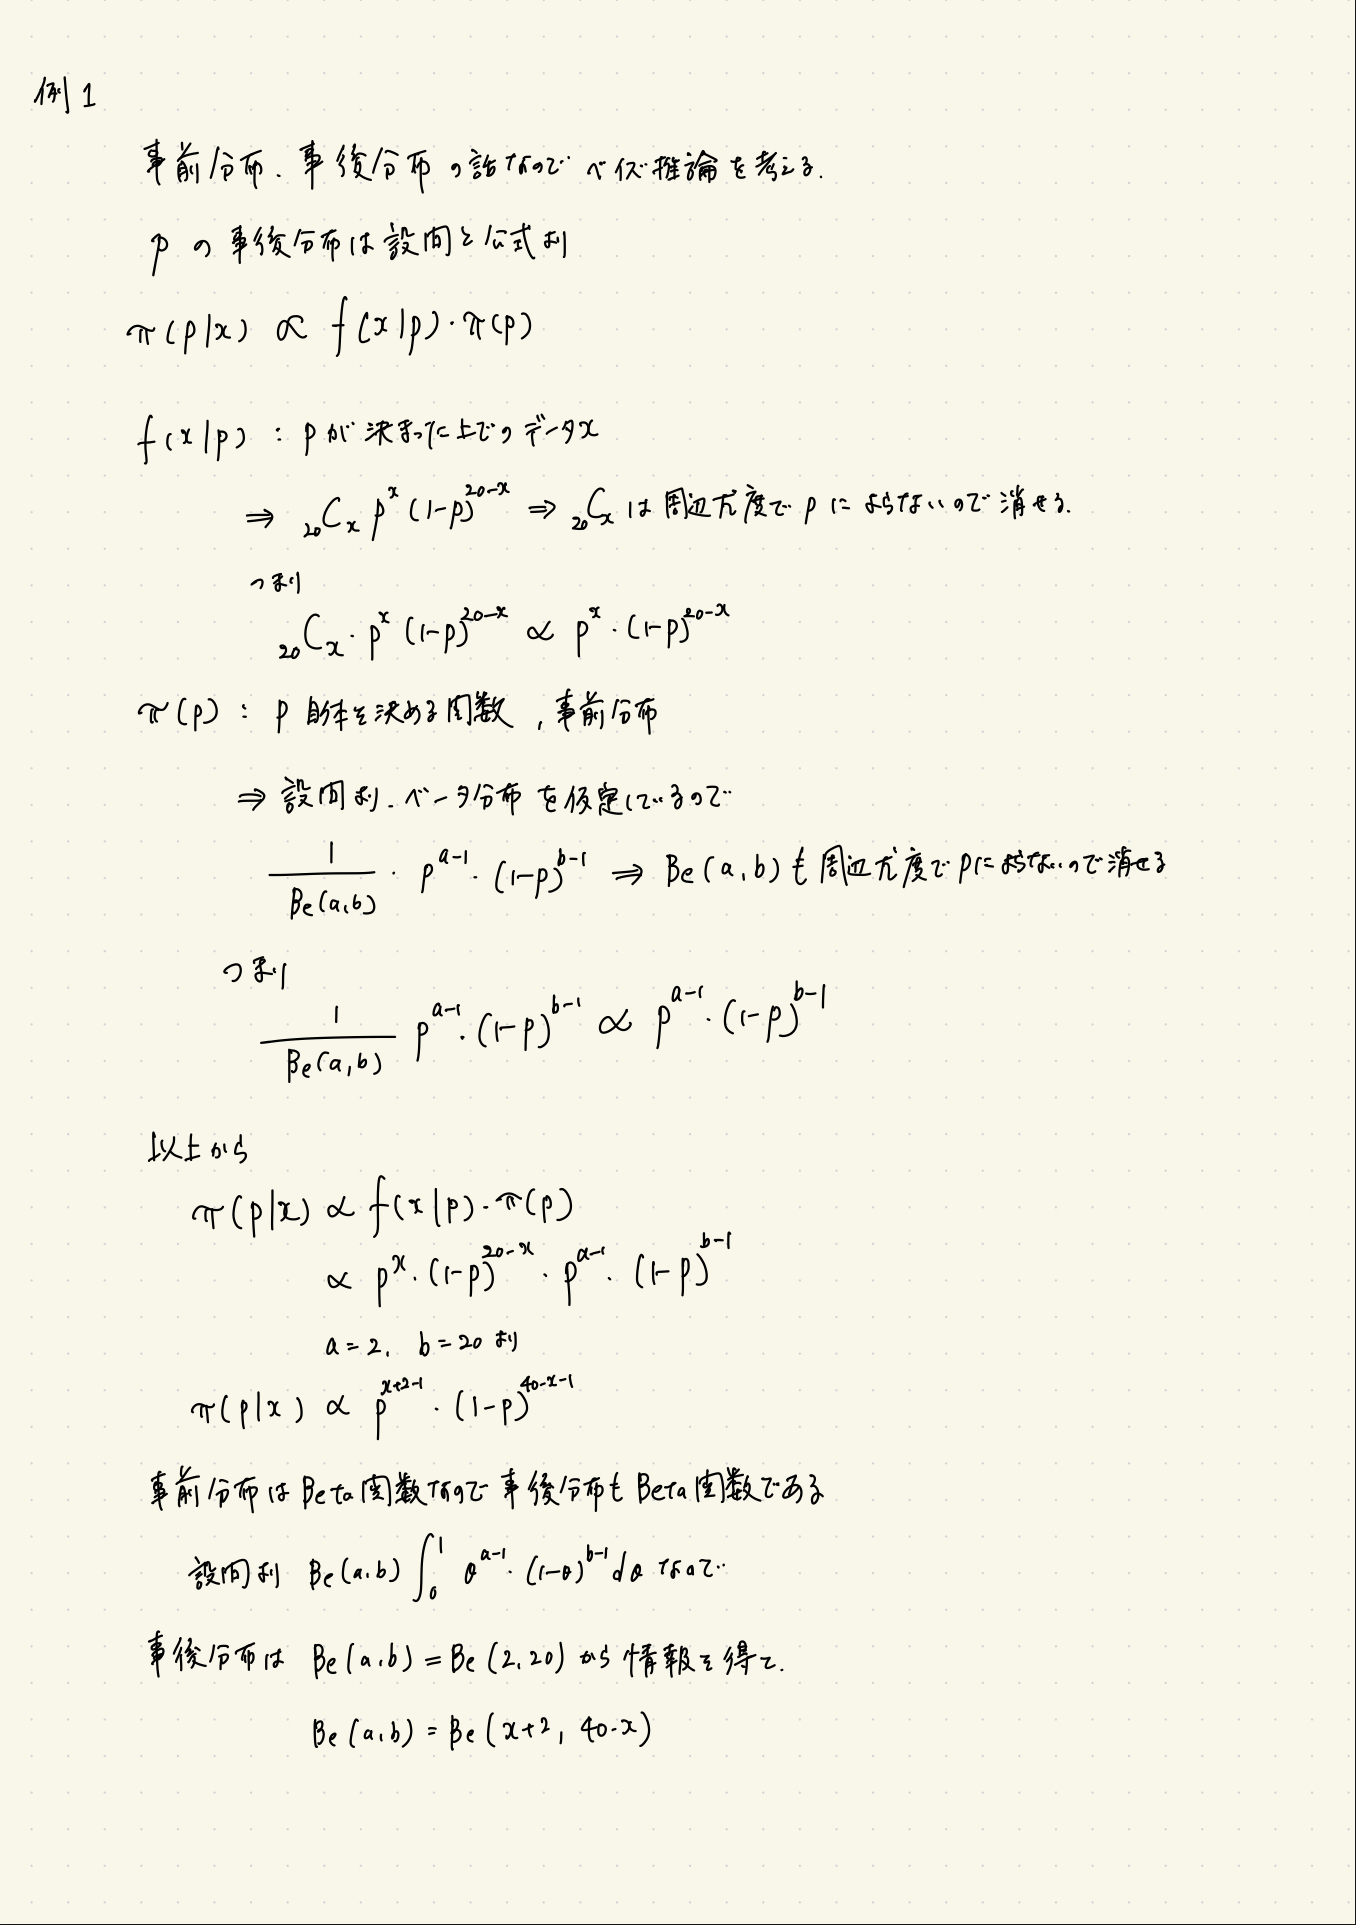 例1
事前分布、事後分布の話なのでベイズ推論を考える.
p の事後分布は設問と公式より
π(p|x) ∝ f(x|p)・π(p)
f(x|p) : p が決まった上でのデータx
⇒ ₂₀Cₓ p^x (1-p)^{20-x} ⇒ ₂₀Cₓ は周辺尤度で p によらないので消せる.
つまり
₂₀Cₓ・p^x (1-p)^{20-x} ∝ p^x・(1-p)^{20-x}
π(p) : p 自体を決める関数 , 事前分布
⇒ 設問より、ベータ分布を仮定しているので
1/Be(a,b)・p^{a-1}・(1-p)^{b-1} ⇒ Be(a,b) も周辺尤度で p によらないので消せる
つまり
1/Be(a,b) p^{a-1}・(1-p)^{b-1} ∝ p^{a-1}・(1-p)^{b-1}
以上から
π(p|x) ∝ f(x|p)・π(p)
∝ p^x・(1-p)^{20-x}・p^{a-1}・(1-p)^{b-1}
a=2, b=20 より
π(p|x) ∝ p^{x+2-1}・(1-p)^{40-x-1}
事前分布はBeta関数なので事後分布もBeta関数である
設問より Be(a,b) ∫₀¹ θ^{a-1}・(1-θ)^{b-1} dθ なので
事後分布は Be(a,b) = Be(2,20) から情報を得て、
Be(a,b) = Be(x+2, 40-x)